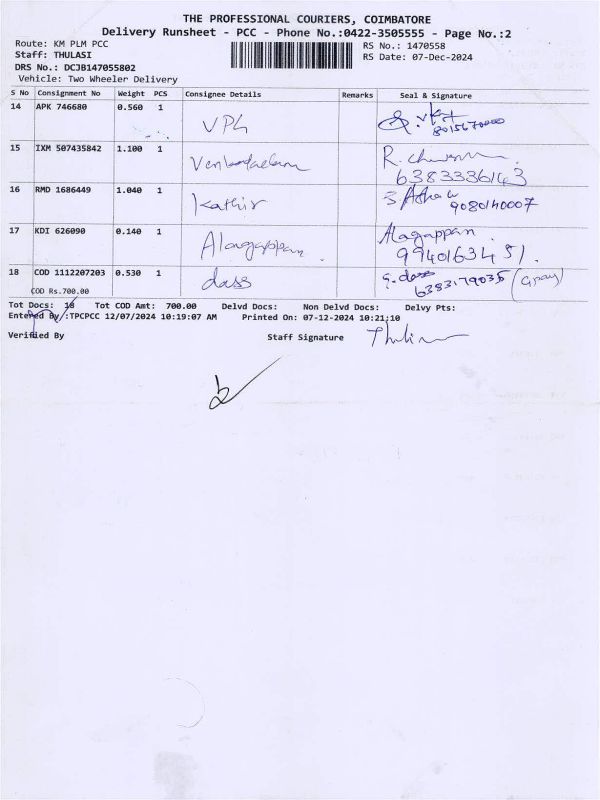 THE PROFESSIONAL COURIERS, COIMBATORE
Delivery Runsheet - PCC - Phone No.:0422-3505555 - Page No.:2
Route: KM PLM PCC
Staff: THULASI
DRS No.: DCJB147055802
Vehicle: Two Wheeler Delivery
RS No.: 1470558
RS Date: 07-Dec-2024
S No Consignment No Weight PCS Consignee Details Remarks Seal & Signature
14 APK 746680 0.560 1 VPL
8015670000
15 IXM 507435842 1.100 1 R.
6383336143
16 RMD 1686449 1.040 1 Kathir
9080140007
17 KDI 626090 0.140 1 Alagappan Alagappan
9940163451.
18 COD 1112207203 0.530 1 dass G. dass
COD Rs.700.00 6383179035 (Gpay)
Tot Docs: 18 Tot COD Amt: 700.00 Delvd Docs: Non Delvd Docs: Delvy Pts:
Entered By :TPCPCC 12/07/2024 10:19:07 AM Printed On: 07-12-2024 10:21:10
Verified By Staff Signature